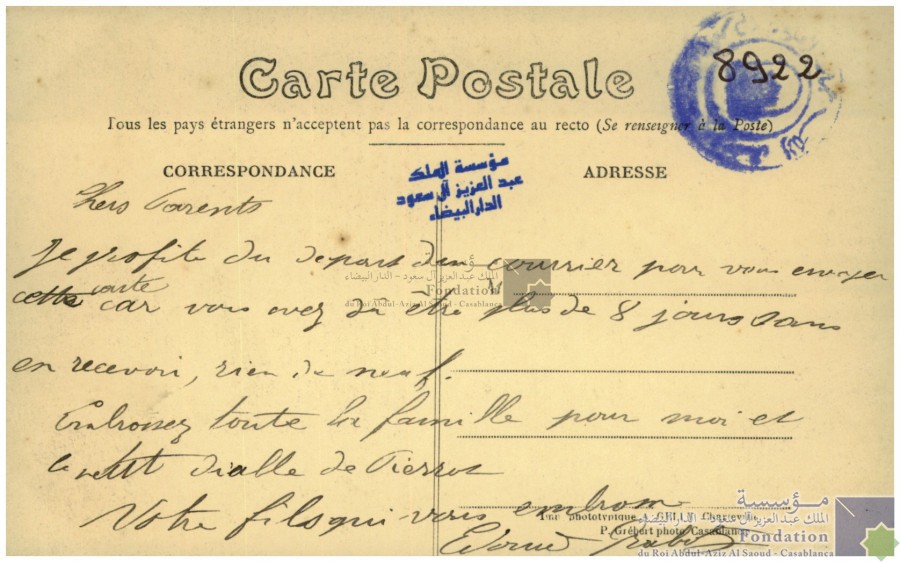 8922
Carte Postale
Tous les pays étrangers n'acceptent pas la correspondance au recto (Se renseigner à la Poste)
CORRESPONDANCE
ADRESSE
مؤسسة الملك
عبد العزيز آل سعود
الدار البيضاء
Chers Parents
Je profite du depart d'un courrier pour vous envoyer
cette carte car vous avez dû être plus de 8 jours sans
en recevoir, rien de neuf.
Embrassez toute la famille pour moi et
le petit diable de Pierrot
Votre fils qui vous embrasse
مؤسسة
الملك عبد العزيز آل سعود - الدار البيضاء
Fondation
du Roi Abdul-Aziz Al Saoud - Casablanca
M
phototypique
P. Grébert photo Casablanca
مؤسسة
الملك عبد العزيز آل سعود - الدار البيضاء
Fondation
du Roi Abdul-Aziz Al Saoud - Casablanca